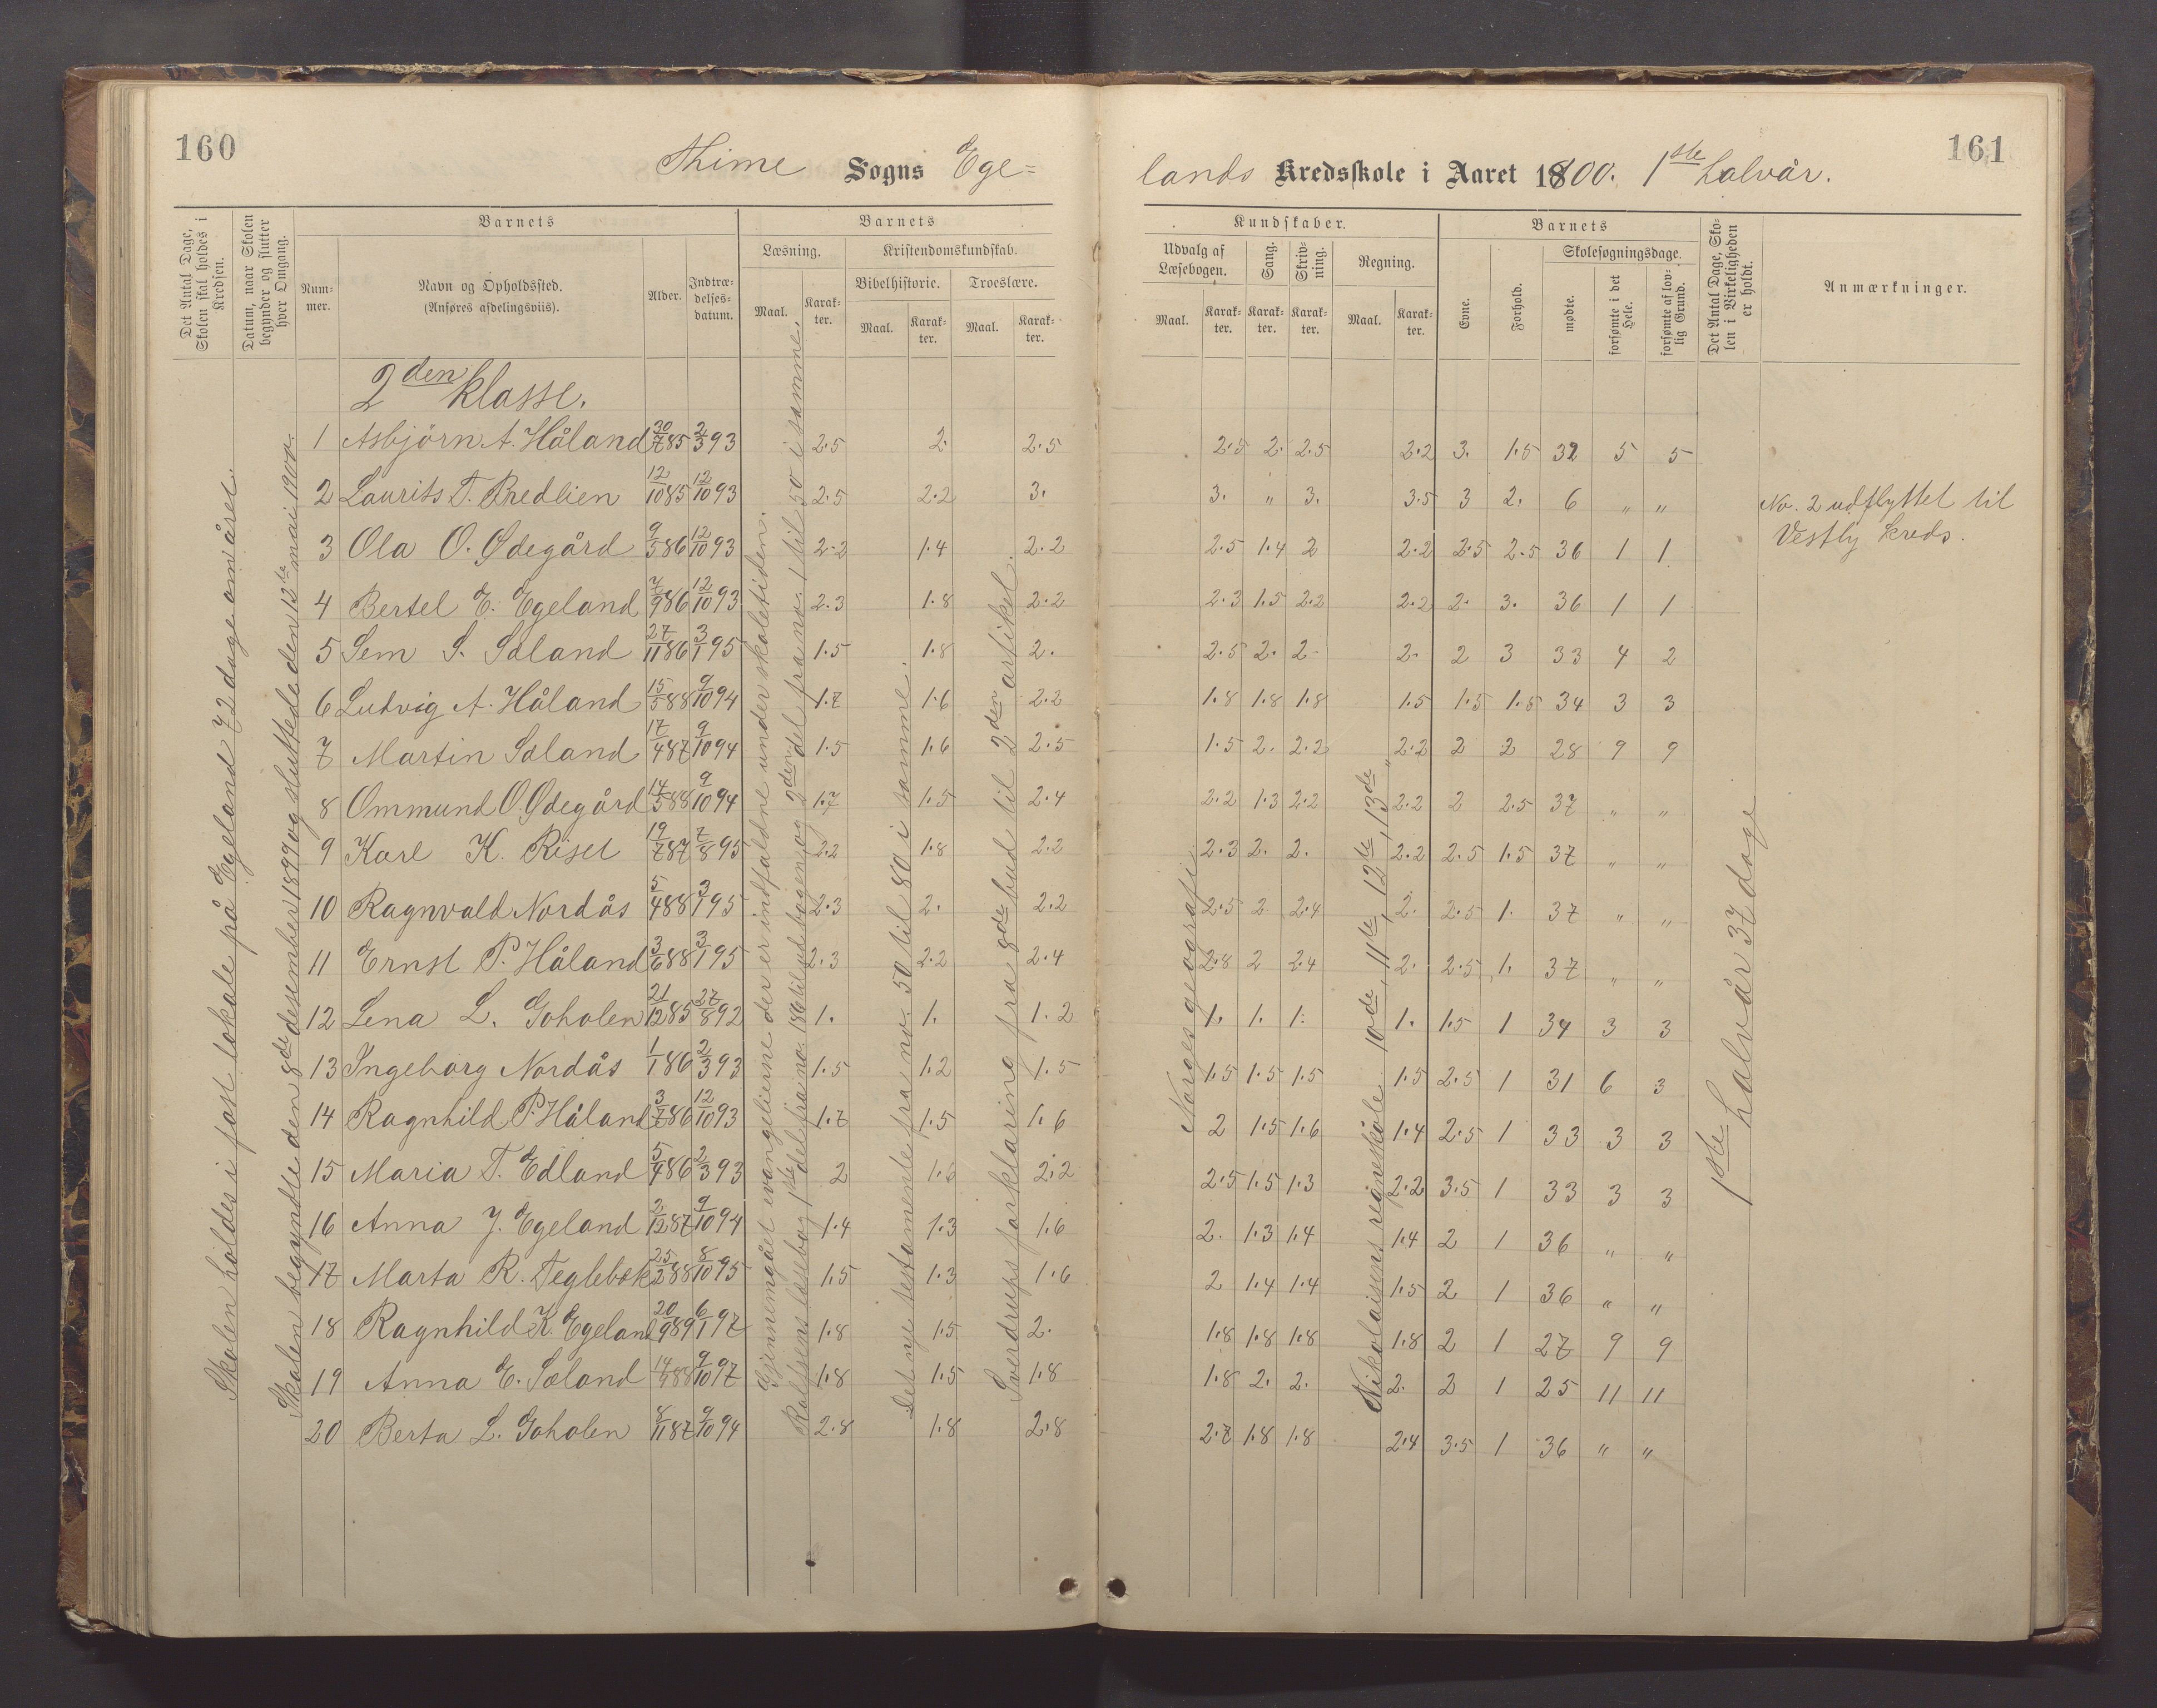 160
Thime Sogns Ege=
lands Kredsskole i Aaret 1800. 1ste halvår.
161
Det Antal Dage, Skolen skal holdes i Kredsen.
Datum, naar Skolen begynder og slutter hver Omgang.
Barnets
Nummer.
Navn og Opholdssted.
(Anføres afdelingsviis).
Alder.
Indtrædelses-datum.
Barnets
Læsning.
Maal.
Karakter.
Kristendomskundskab.
Bibelhistorie.
Maal.
Karakter.
Troeslære.
Maal.
Karakter.
Kundskaber.
Udvalg af Læsebogen.
Maal.
Karakter.
Sang.
Karakter.
Skrivning.
Karakter.
Regning.
Maal.
Karakter.
Barnets
Evne.
Forhold.
Skolesøgningsdage.
mødte.
forsømte i det Hele.
forsømte af lovlig Grund.
Det Antal Dage, Skolen i Virkeligheden er holdt.
Anmærkninger.
2den klasse.
1 Asbjörn A. Håland 30/7 85 2/3 93 2.5 2. 2.5 2.5 2. 2.5 2.2 3. 1.5 32 5 5
2 Laurits T. Bredlien 12/10 85 12/10 93 2.5 2.2 3. 3. " 3. 3.5 3 2. 6 " "
3 Ola O. Ødegård 9/5 86 12/10 93 2.2 1.4 2.2 2.5 1.4 2 2.2 2.5 2.5 36 1 1
4 Bertel E. Egeland 7/9 86 12/10 93 2.3 1.8 2.2 2.3 1.5 2.2 2.2 2. 3. 36 1 1
5 Sem S. Sæland 27/11 86 3/1 95 1.5 1.8 2. 2.5 2. 2. 2. 2 3 33 4 2
6 Ludvig A. Håland 15/5 88 9/10 94 1.7 1.6 2.2 1.8 1.8 1.8 1.5 1.5 1.5 34 3 3
7 Martin Sæland 17/4 87 9/10 94 1.5 1.6 2.5 1.5 2. 2.2 2.2 2 2 28 9 9
8 Ommund O. Ødegård 14/5 88 9/10 94 1.7 1.5 2.4 2.2 1.3 2.2 2.2 2 2.5 37 " "
9 Karl K. Riset 19/7 87 7/8 95 2.2 1.8 2.2 2.3 2. 2. 2.2 2.5 1.5 37 " "
10 Ragnvald Nordås 5/4 88 3/1 95 2.3 2. 2.2 2.5 2 2.4 2. 2.5 1. 37 " "
11 Ernst P. Håland 3/6 88 3/1 95 2.3 2.2 2.4 2.8 2 2.4 2. 2.5 1. 37 " "
12 Lena L. Goholen 21/12 85 27/8 92 1. 1. 1.2 1. 1. 1. 1. 1.5 1 34 3 3
13 Ingeborg Nordås 1/1 86 2/3 93 1.5 1.2 1.5 1.5 1.5 1.5 1.5 2.5 1 31 6 3
14 Ragnhild P. Håland 3/7 86 12/10 93 1.7 1.5 1.6 2 1.5 1.6 1.4 2.5 1 33 3 3
15 Maria T. Edland 5/4 86 2/3 93 2 2.2 2.5 1.5 1.3 2.2 3.5 1 33 3 3
16 Anna J. Egeland 2/12 87 9/10 94 1.4 1.3 1.6 2. 1.3 1.4 1.4 2 1 36 " "
17 Marta R. Teglebæk 25/2 88 8/10 95 1.5 1.3 1.6 2 1.4 1.4 1.5 2 1 36 " "
18 Ragnhild K. Egeland 20/9 89 6/1 97 1.8 1.5 2. 1.8 1.8 1.8 1.8 2 1 27 9 9
19 Anna E. Sæland 88 9/10 97 1.8 1.5 1.8 1.8 2. 2. 2. 2 1 25 11 11
20 Berta L. Goholen 8/11 87 9/10 94 2.8 1.8 2.8 2.7 1.8 1.8 2.4 3.5 1 36 " "
Skolen holdes i fast lokale på Egeland 72 dage om året.
Skolen begyndte den 8de desember 1899 og sluttede den 12te mai 1900.
Gjennemgået evangelierne der er indfaldne under skoletiden.
Rolfsens læsebog 1ste del fra no. 186 til ud bogen og 2den del fra no. 1 til 50 i samme.
Det nye testamente fra no. 50 til 80 i samme.
Sverdrups forklaring fra 8de bud til 2den artikel.
Norges geografi.
Nikolaisens regneskole 10de, 11te, 12te, 13de
1ste halvår 37 dage
No. 2 udflyttet til
Vestly kreds.